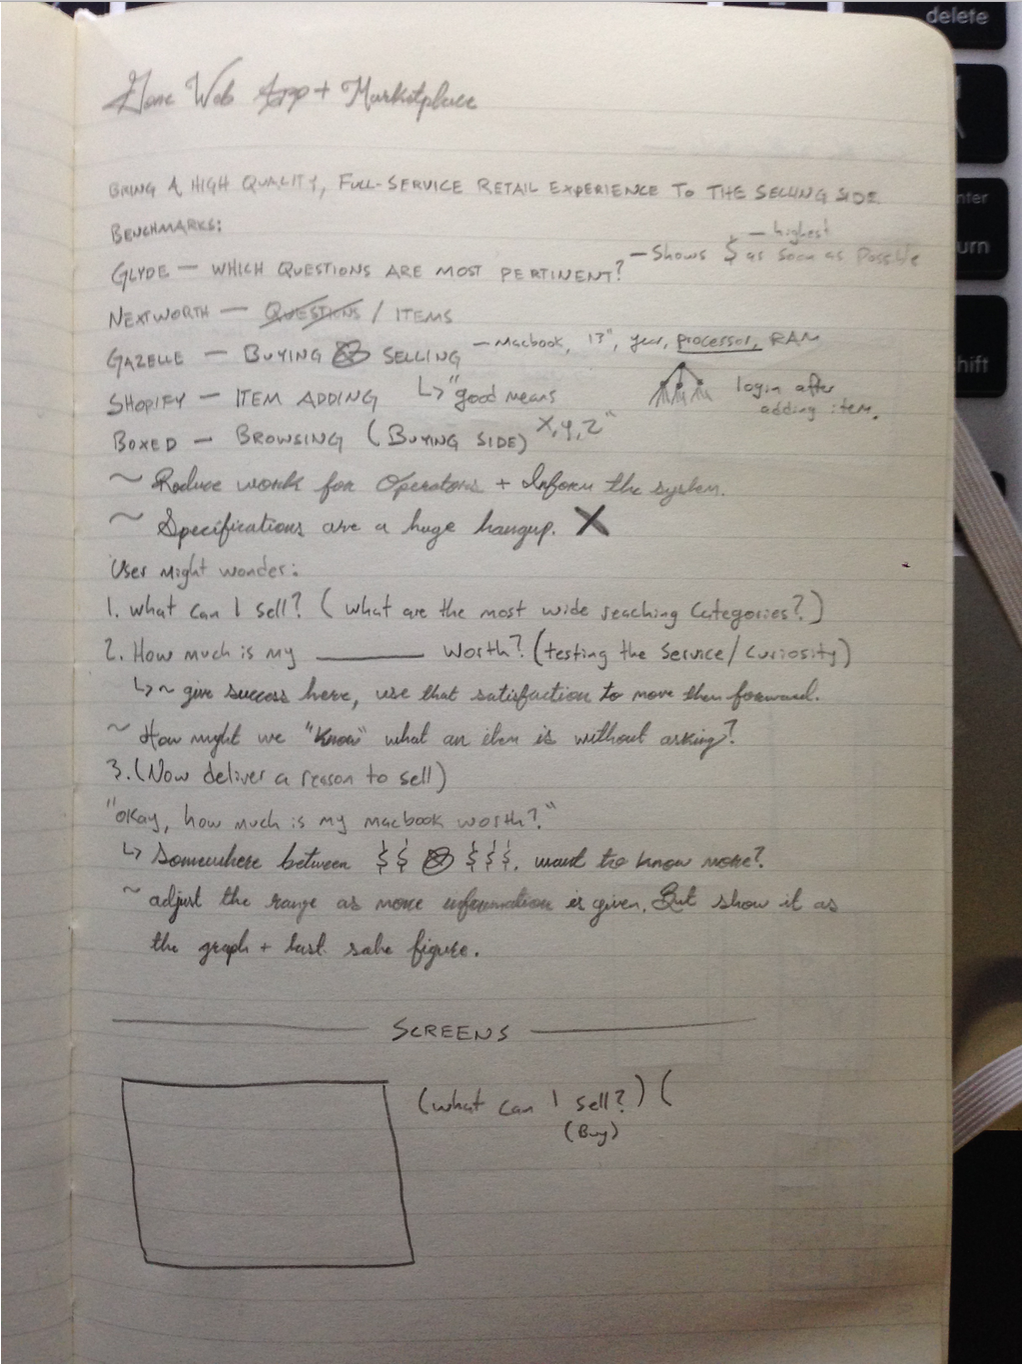 Gone Web App + Marketplace
BRING A HIGH QUALITY, FULL-SERVICE RETAIL EXPERIENCE TO THE SELLING SIDE.
BENCHMARKS:
— highest
GLYDE — WHICH QUESTIONS ARE MOST PERTINENT? — Shows $ as soon as possible
NEXTWORTH — QUESTIONS / ITEMS
GAZELLE — BUYING SELLING — Macbook, 13", year, processor, RAM
SHOPIFY — ITEM ADDING ↳ "good means login after
X, Y, Z" adding item.
BOXED — BROWSING (BUYING SIDE)
~ Reduce work for Operators + Inform the system.
~ Specifications are a huge hangup. X
User might wonder:
1. What can I sell? (what are the most wide reaching categories?)
2. How much is my ______ worth? (testing the service/curiosity)
↳ ~ give success here, use that satisfaction to move them forward.
~ How might we "know" what an item is without asking?
3. (Now deliver a reason to sell)
"Okay, how much is my macbook worth?"
↳ Somewhere between $$ $$$. want to know more?
~ adjust the range as more information is given. But show it as
the graph + last sale figure.
SCREENS
(what can I sell?) (
(Buy)
delete